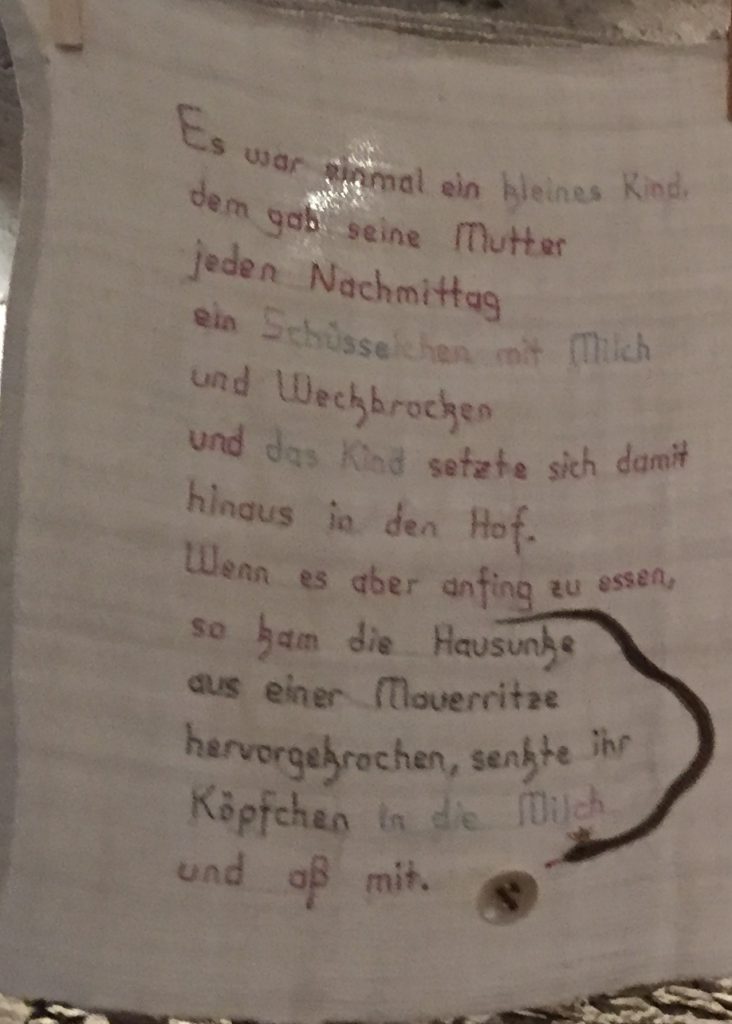 Es war einmal ein kleines Kind,
dem gab seine Mutter
jeden Nachmittag
ein Schüsselchen mit Milch
und Weckbrocken
und das Kind setzte sich damit
hinaus in den Hof.
Wenn es aber anfing zu essen,
so kam die Hausunke
aus einer Mauerritze
hervorgekrochen, senkte ihr
Köpfchen in die Milch
und aß mit.